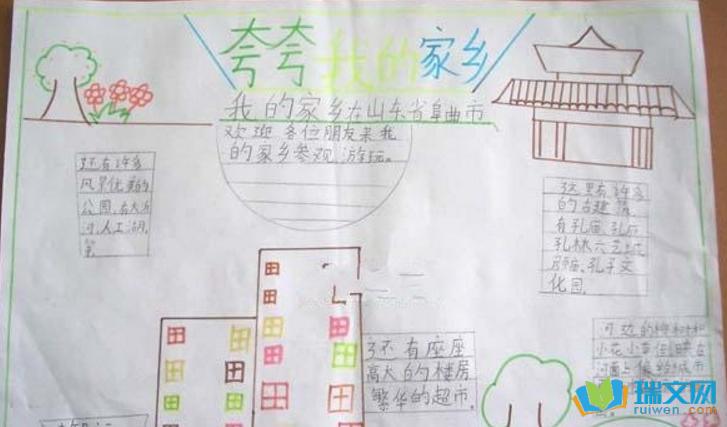 夸夸我的家乡
我的家乡在山东省阜曲市
欢迎各位朋友来我
的家乡参观游玩。
还有许多
风景优美的
公园,有大沂
河,人工湖,
等
这里有许多
的古建筑
有孔庙、孔府
孔林六艺城
颜庙、孔子文
化园
还有座座
高大的楼房
繁华的超市。
河边的柳树和
小花小草倒映在
河面上
城市
瑞文网
ruiwen.com